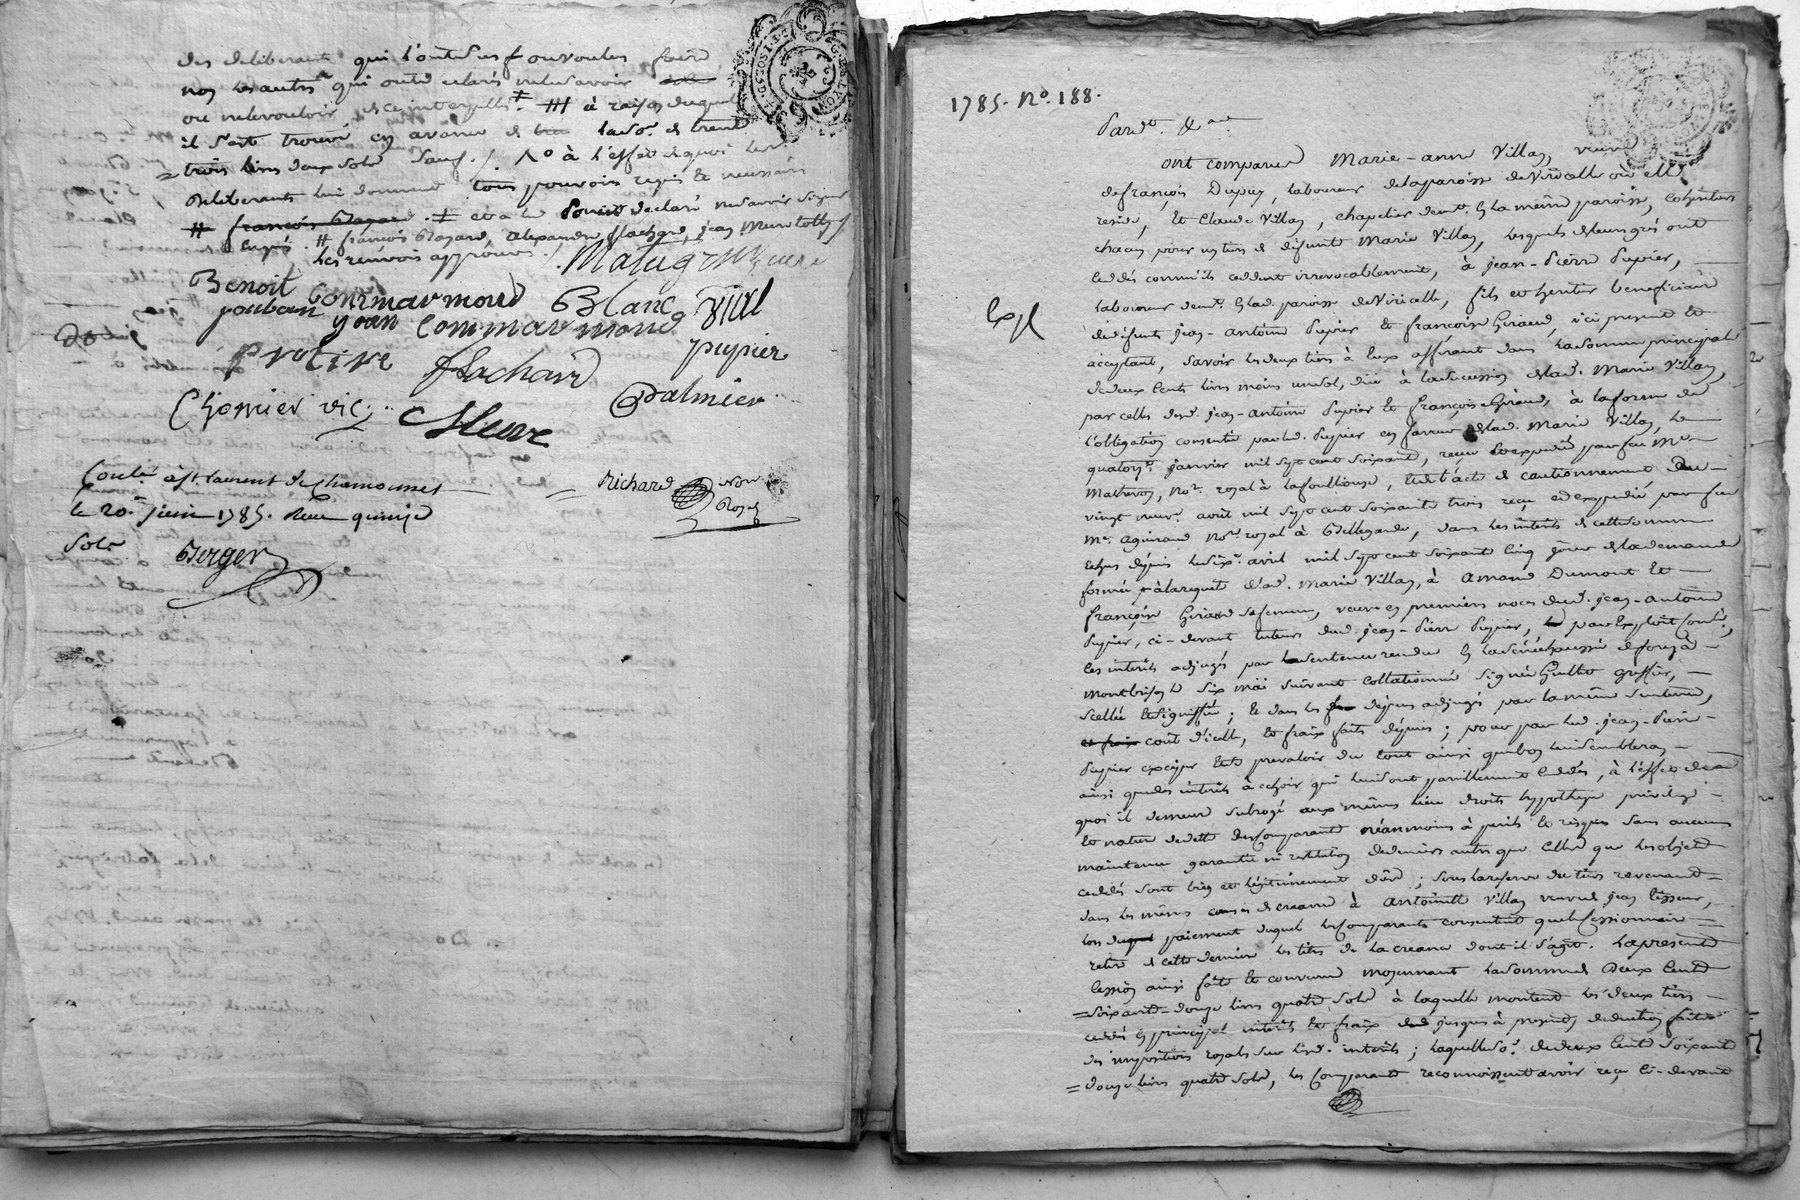 des deliberants qui l'ont sçu ou voulu faire
non les autres qui ont declaré ne le savoir
ou ne le vouloir, de ce interpellés. ‡ ### à raison duquel
il s'est trouvé en avance de la so. de trente
= trois livres douze sols sauf /. No à l'effet de quoi les
deliberants lui donnent tous pouvoirs requis & necessaires
# françois Bazard. ‡ et a led. declaré ne savoir signer
# françois Bazard, alexandre flachard, jean
les renvois approuvés.
Benoit Commarmond Blanc
jouban yoan Commarmond
protire flachard pupier
Chomier vic. Palmier
Contlé à St. laurent de Chamousset
le 20e juin 1785. Reçu quinze
sols Berger
= Richard Not. Royal
1785. No. 188.
Pardt. &a
ont comparu Marie-anne Villan, veuve
de françois Dupuy, laboureur de la paroisse de Viricelle où elle
reside, & Claude Villan, chapelier demt. en la même paroisse, cohéritiers
chacun pour un tiers de defunte Marie Villan, lesquels de leurs grés ont
ceddé comm'ils ceddent irrevocablement, à jean-Pierre Pupier,
laboureur demt. en lad. paroisse de Viricelle, fils et heritier beneficiaire
Expé
de defunts jean-antoine Pupier & françoise Giraud, ici present &
acceptant, savoir les deux tiers à eux afférant dans la somme principale
de deux cents livres moins un sol, düe à la succession de lad. Marie Villan,
par celles desd. jean-antoine Pupier & françoise Giraud, à la forme de
l'obligation consentie par led. Pupier en faveur de lad. Marie Villan, le
quatorze janvier mil sept cent soixante, reçue & expediée par feu Me
Mathevon, Nore. royal à lafouillouse, & de l'acte de cautionnement du
vingt neuf aout mil sept cent soixante trois reçu et expedié par feu
Me. aguiraud Nore. royal à Bellegarde, dans les interets de cette somme
echus depuis le dix avril mil sept cent soixante cinq jour de la demande
formée à la requete de lad. Marie Villan, à amand Dumont &
françoise Giraud sa femme, veuve en premiers noces dud. jean-antoine
Pupier, ci-devant tuteurs dud. jean-Pierre Pupier, par exploit Contlé,
les interêts adjugés par la sentence rendue en la sénéchaussée de forez à
Montbrison le six mai suivant collationné signé Guillet greffier,
scellée & signiffiée; & dans les depens adjugés par la même sentence,
et frais cout d'icelle, & fraix faits depuis; pour par led. jean-Pierre
Pupier exceper & se prevaloir du tout ainsi que bon lui semblera
ainsi que des interêts à echoir qui lui sont pareillement ceddés, à l'effet de
quoi il demeure subrogé aux mêmes lieu droits hypotheque privilege
& nature de dette des Comparants néanmoins à perils & risques sans aucune
maintenue garantie ni restitution de deniers autres que celle que les objets
ceddés sont bien et légitimement dûs; sous la reserve du tiers revenant
dans les mêmes causes de creance à antoinette Villan veuve de jean Tisseur,
lors du paiement duquel les Comparants consentent que le Cessionnaire
retire de cette derniere les titres de la creance dont il s'agit. La presente
Cession ainsi faite & convenue moyennant la somme de Deux Cents
= soixante-douze livres quatre sols à laquelle montent les deux tiers
ceddés en principal interêts & fraix jusques à present, deduction faite
des impositions royales sur lesd. interêts; laquelle so. de deux Cents soixante
= douze livres quatre sols, les Comparants reconnoissent avoir reçu ci-devant